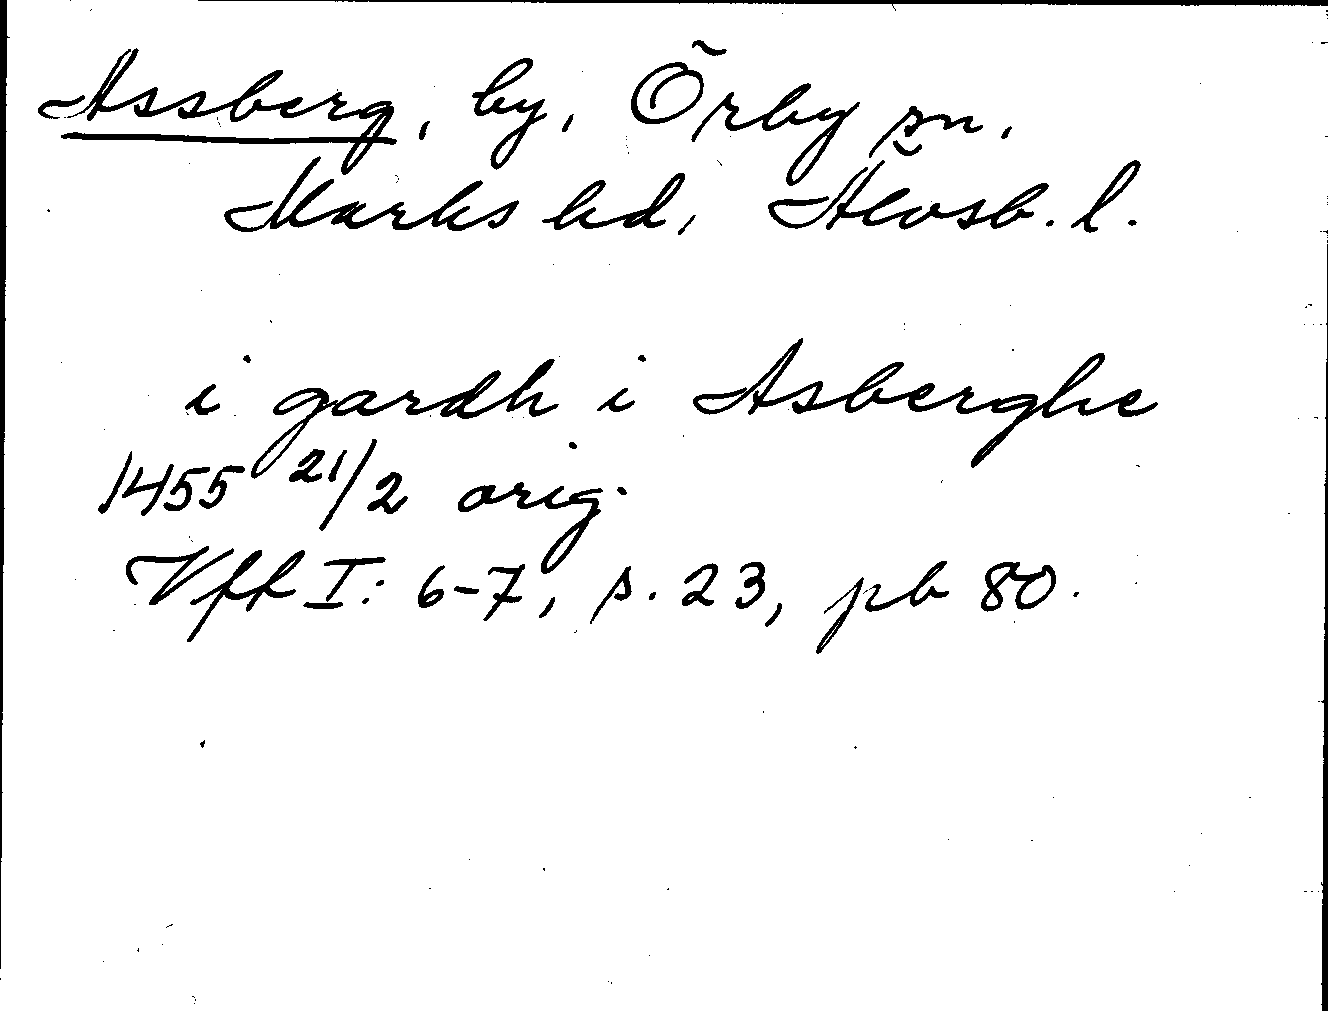 Assberg, by, Örby sn,
Marks hd, Älvsb. l.
i gardh i Asberghe
1455 21/2 orig.
Vff I: 6-7, s. 23, pb 80.